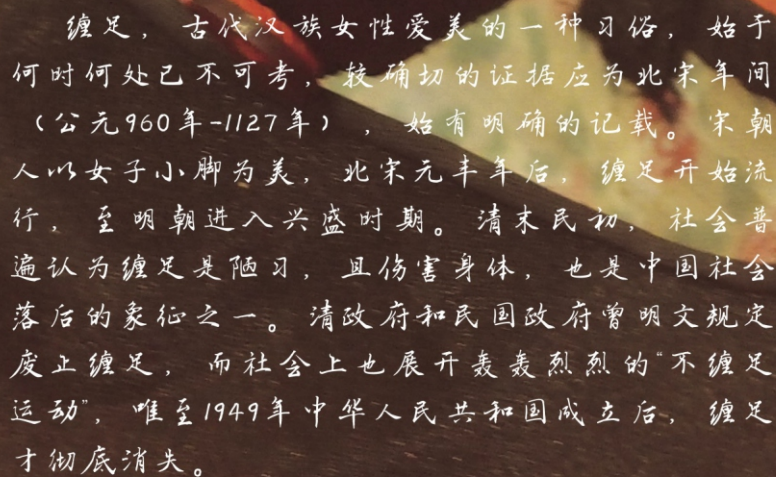 缠足，古代汉族女性爱美的一种习俗，始于
何时何处已不可考，较确切的证据应为北宋年间
（公元960年-1127年），始有明确的记载。宋朝
人以女子小脚为美，北宋元丰年后，缠足开始流
行，至明朝进入兴盛时期。清末民初，社会普
遍认为缠足是陋习，且伤害身体，也是中国社会
落后的象征之一。清政府和民国政府曾明文规定
废止缠足，而社会上也展开轰轰烈烈的“不缠足
运动”，唯至1949年中华人民共和国成立后，缠足
才彻底消失。